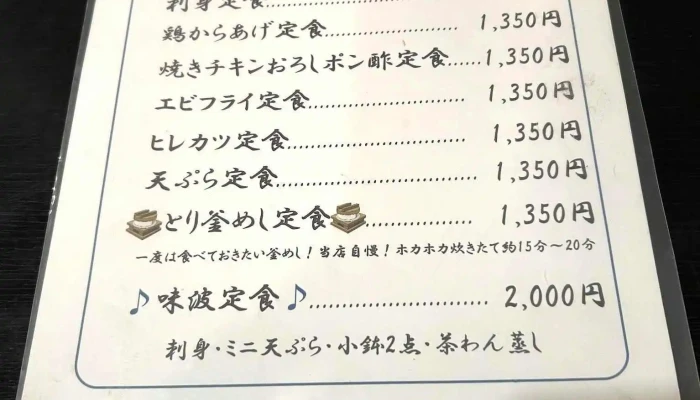 刺身定食
鶏からあげ定食.................... 1,350円
焼きチキンおろしポン酢定食......1,350円
エビフライ定食........................ 1,350円
ヒレカツ定食........................... 1,350円
天ぷら定食.............................. 1,350円
とり釜めし定食................ 1,350円
一度は食べておきたい釜めし！当店自慢！ホカホカ炊きたて約15分～20分
♪味波定食♪........................... 2,000円
刺身・ミニ天ぷら・小鉢2点・茶わん蒸し